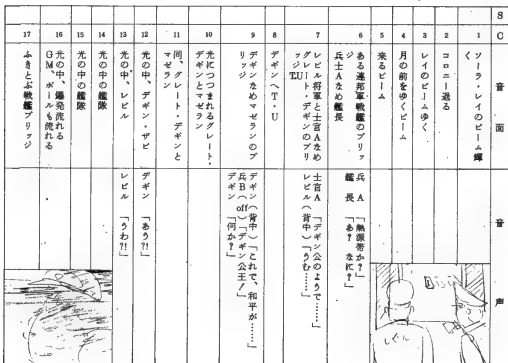 S
C
音
画
音
声
1
ソーラ・レイのビーム輝
く
2
コロニー退る
3
レイのビームゆく
4
月の前をゆくビーム
5
来るビーム
6
ある連邦軍戦艦のブリッ
ジ
兵士Aなめ艦長
兵 A 「熱源帯か?」
艦 長 「あ? なに?」
7
レビル将軍と士官Aなめ
グレート・デギンのブリ
ッジT.U
士官A 「デギン公のようで……」
レビル(背中)「うむ……」
8
デギンへT・U
9
デギンなめマゼランのブ
リッジ
デギン(背中)「これで、和平が……」
兵B(off)「デギン公王!」
デギン 「何か?」
10
光につつまれるグレート・
デギンとマゼラン
11
同、グレート・デギンと
マゼラン
12
光の中、デギン・ザビ
デギン 「あう?!」
13
光の中、レビル
レビル 「うわ?!」
14
光の中の艦隊
15
光の中の艦隊
16
光の中、爆発流れる
GM、ボールも流れる
17
ふきとぶ戦艦ブリッジ